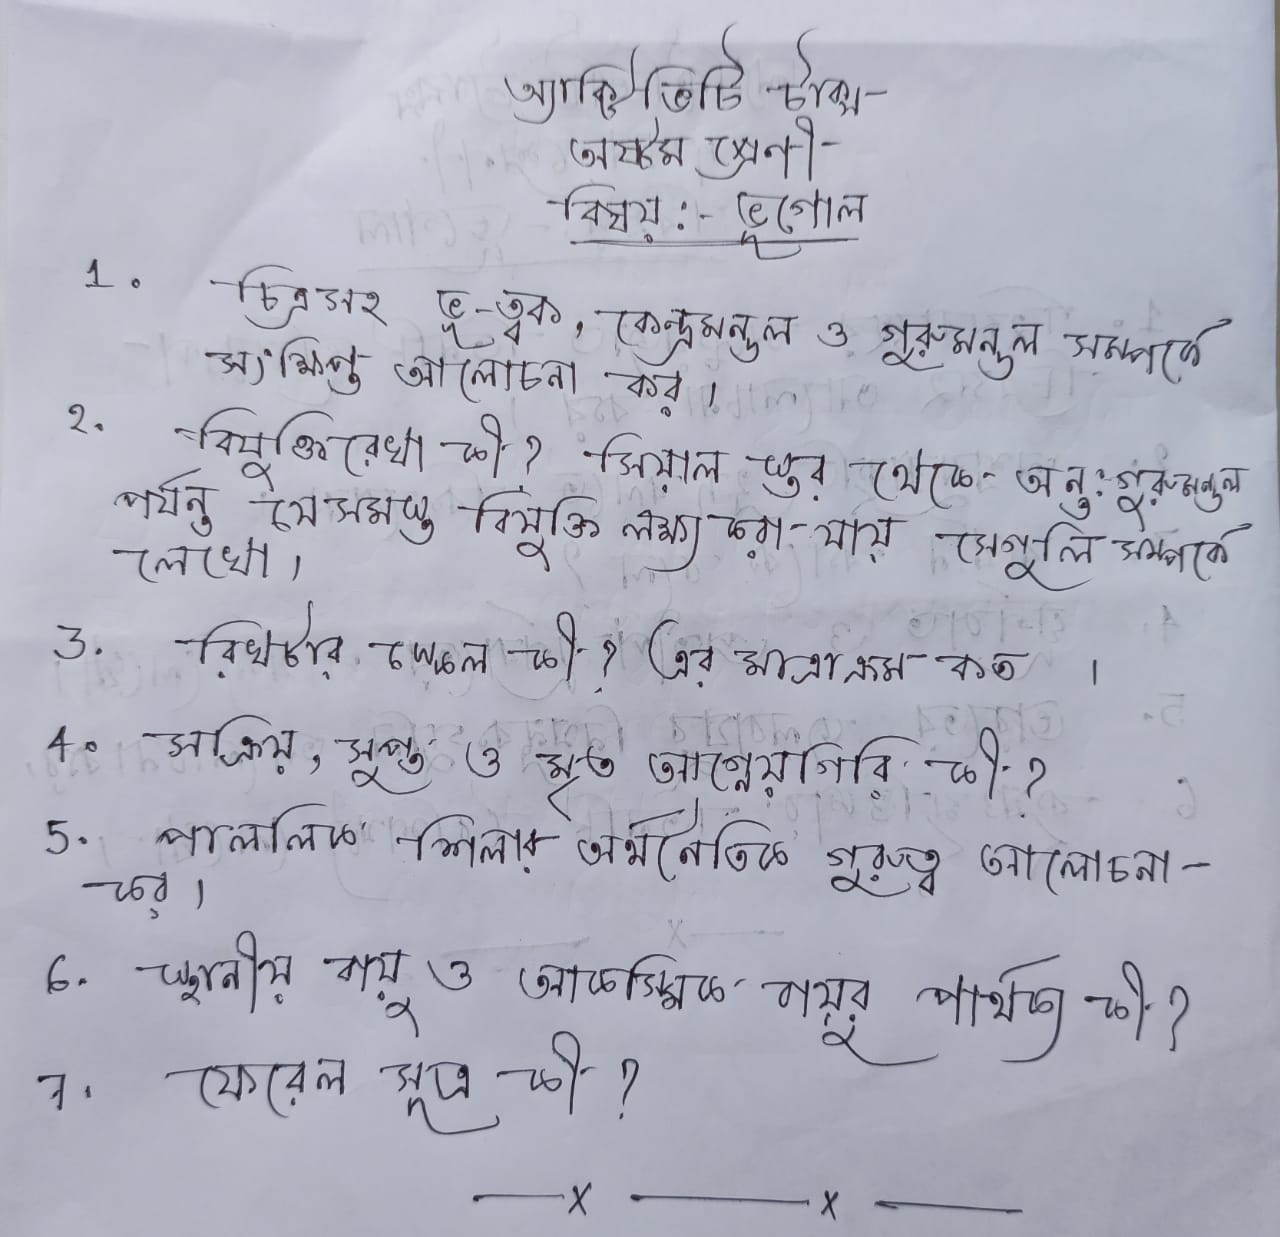 অ্যাক্টিভিটি টাস্ক-
অষ্টম শ্রেণী-
বিষয় :- ভূগোল
1. চিত্রসহ ভূ-ত্বক, কেন্দ্রমন্ডল ও গুরুমন্ডল সম্পর্কে
সংক্ষিপ্ত আলোচনা কর।
২. বিযুক্তিরেখা কী? সিয়াল স্তর থেকে অন্ত:গুরুমন্ডল
পর্যন্ত যে সমস্ত বিযুক্তি লক্ষ্য করা যায় সেগুলি সম্পর্কে
লেখো।
3. রিখটার স্কেল কী? এর মাত্রাক্রম কত ।
4. সক্রিয়, সুপ্ত ও মৃত আগ্নেয়গিরি কী?
5. পাললিক শিলার অর্থনৈতিক গুরুত্ব আলোচনা-
কর।
6. স্থানীয় বায়ু ও আকস্মিক বায়ুর পার্থক্য কী?
7. ফেরেল সূত্র কী?
—x ——x ——